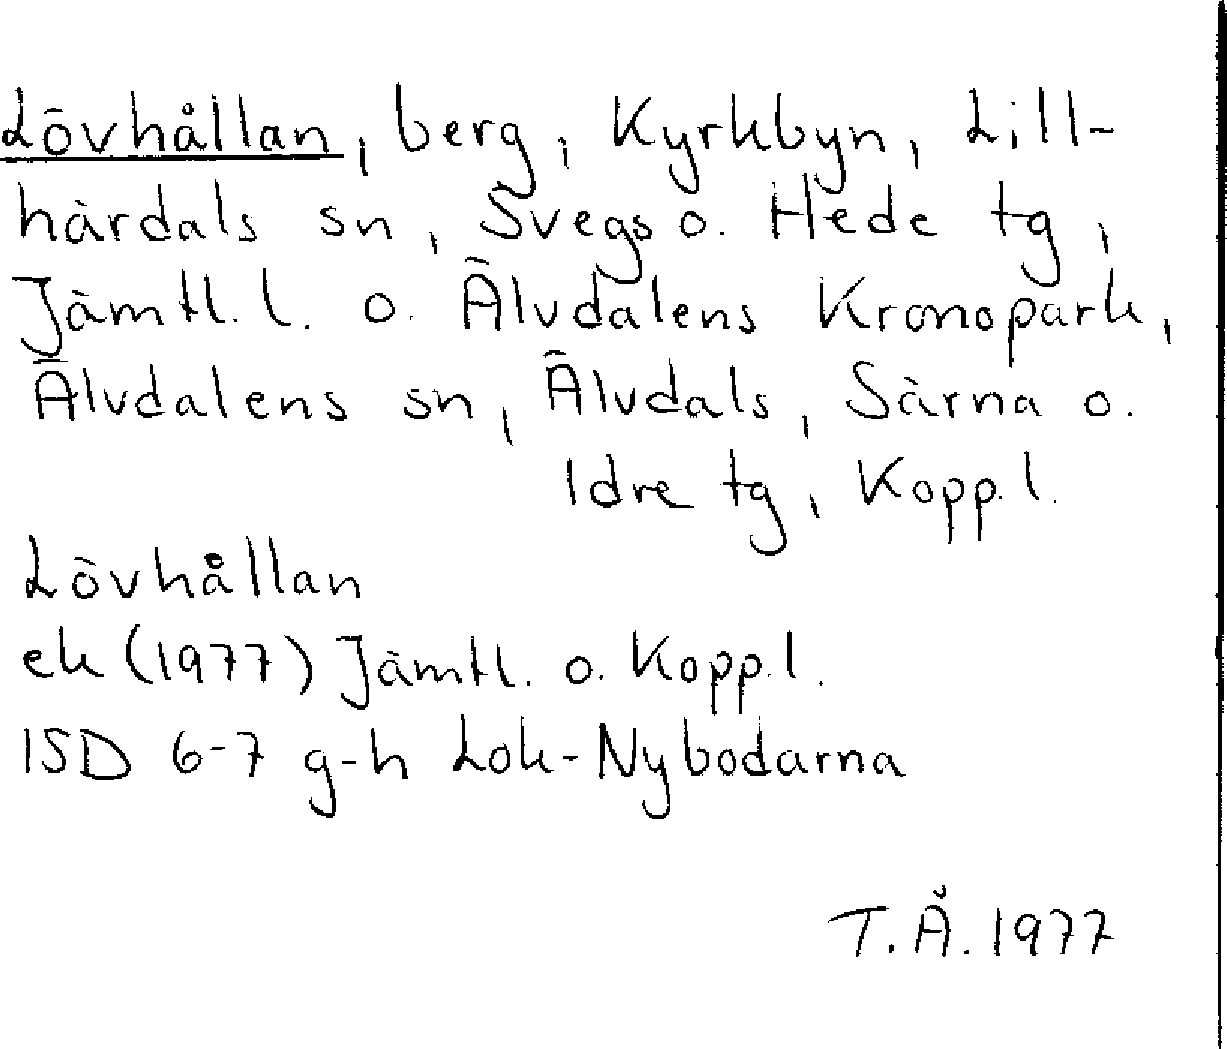 Lövhållan, berg, Kyrkbyn, Lill-
härdals sn, Svegs o. Hede tg,
Jämtl. l. o. Älvdalens Kronopark,
Älvdalens sn, Älvdals, Särna o.
Idre tg, Kopp. l.
Lövhållan
ek (1977) Jämtl. o. Kopp. l.
15D 6-7 g-h Lok-Nybodarna
T. Å. 1977